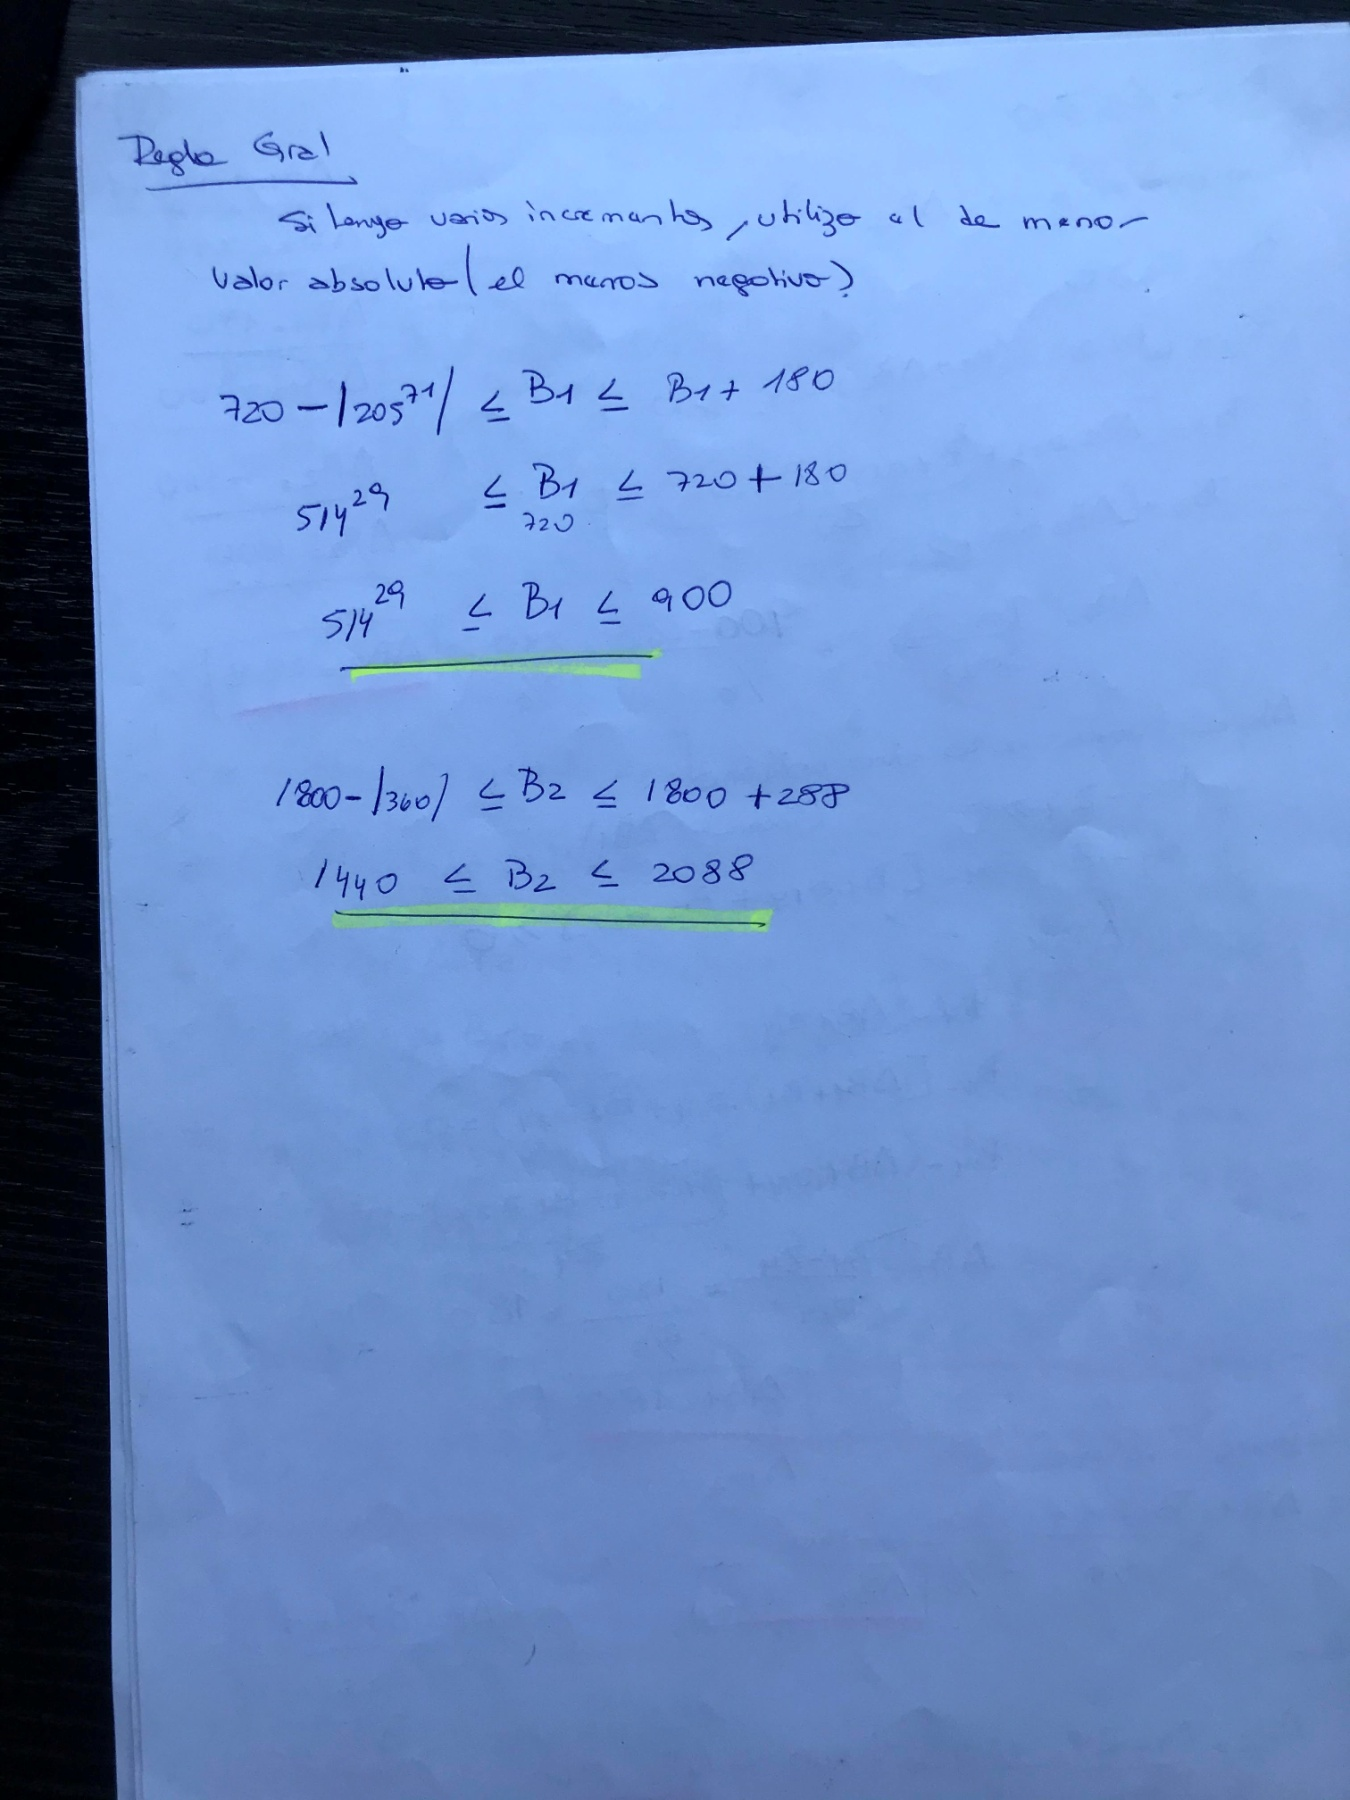 Regla Gral
Si tengo varios incrementos, utilizo el de menor
valor absoluto (el menos negativo)
720 - |205⁷¹| ≤ B1 ≤ B1 + 180
514²⁹ ≤ B1 ≤ 720 + 180
720
514²⁹ ≤ B1 ≤ 900
1800 - |360| ≤ B2 ≤ 1800 + 288
1440 ≤ B2 ≤ 2088